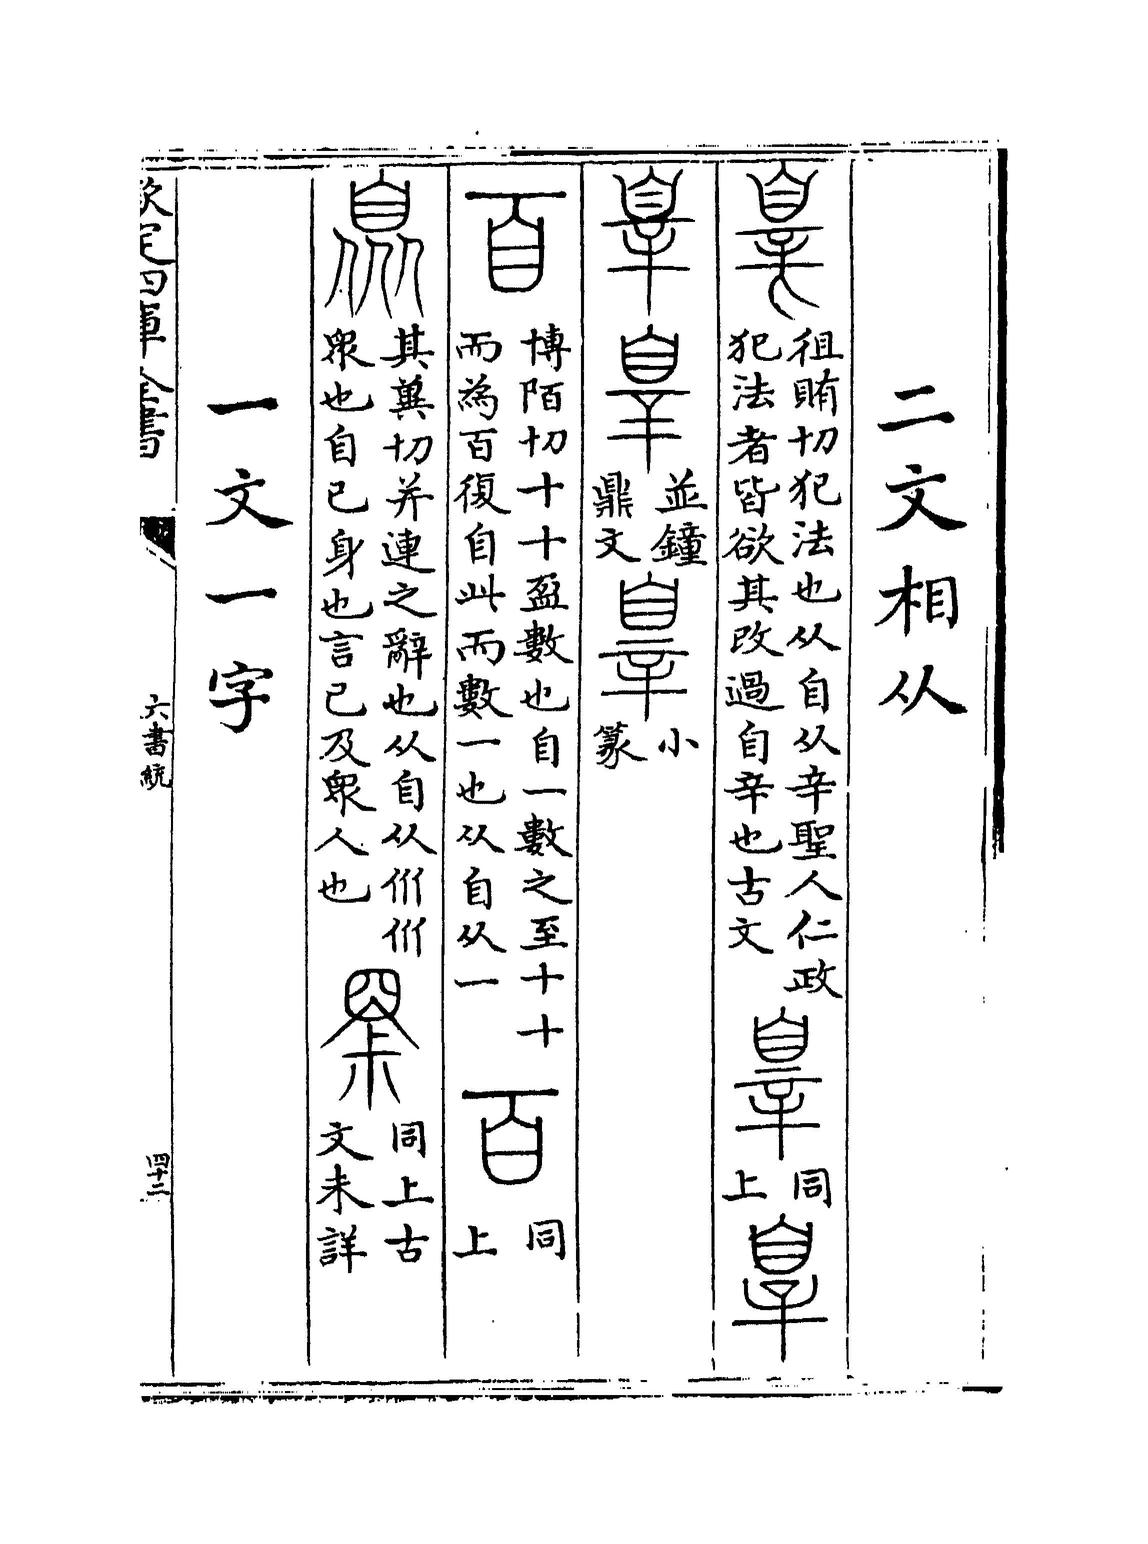 二文相从
辠
徂賄切犯法也从自从辛聖人仁政
犯法者皆欲其改過自辛也古文
辠
同上
辠
辠辠
並鐘
鼎文
辠
小篆
百
博陌切十十盈數也自一數之至十十
而為百復自此而數一也从自从一
百
同上
臮
其兾切并連之辭也从自从㐺㐺
衆也自已身也言已及衆人也
同上古
文未詳
一文一字
欽定四庫全書
六書統
四十二